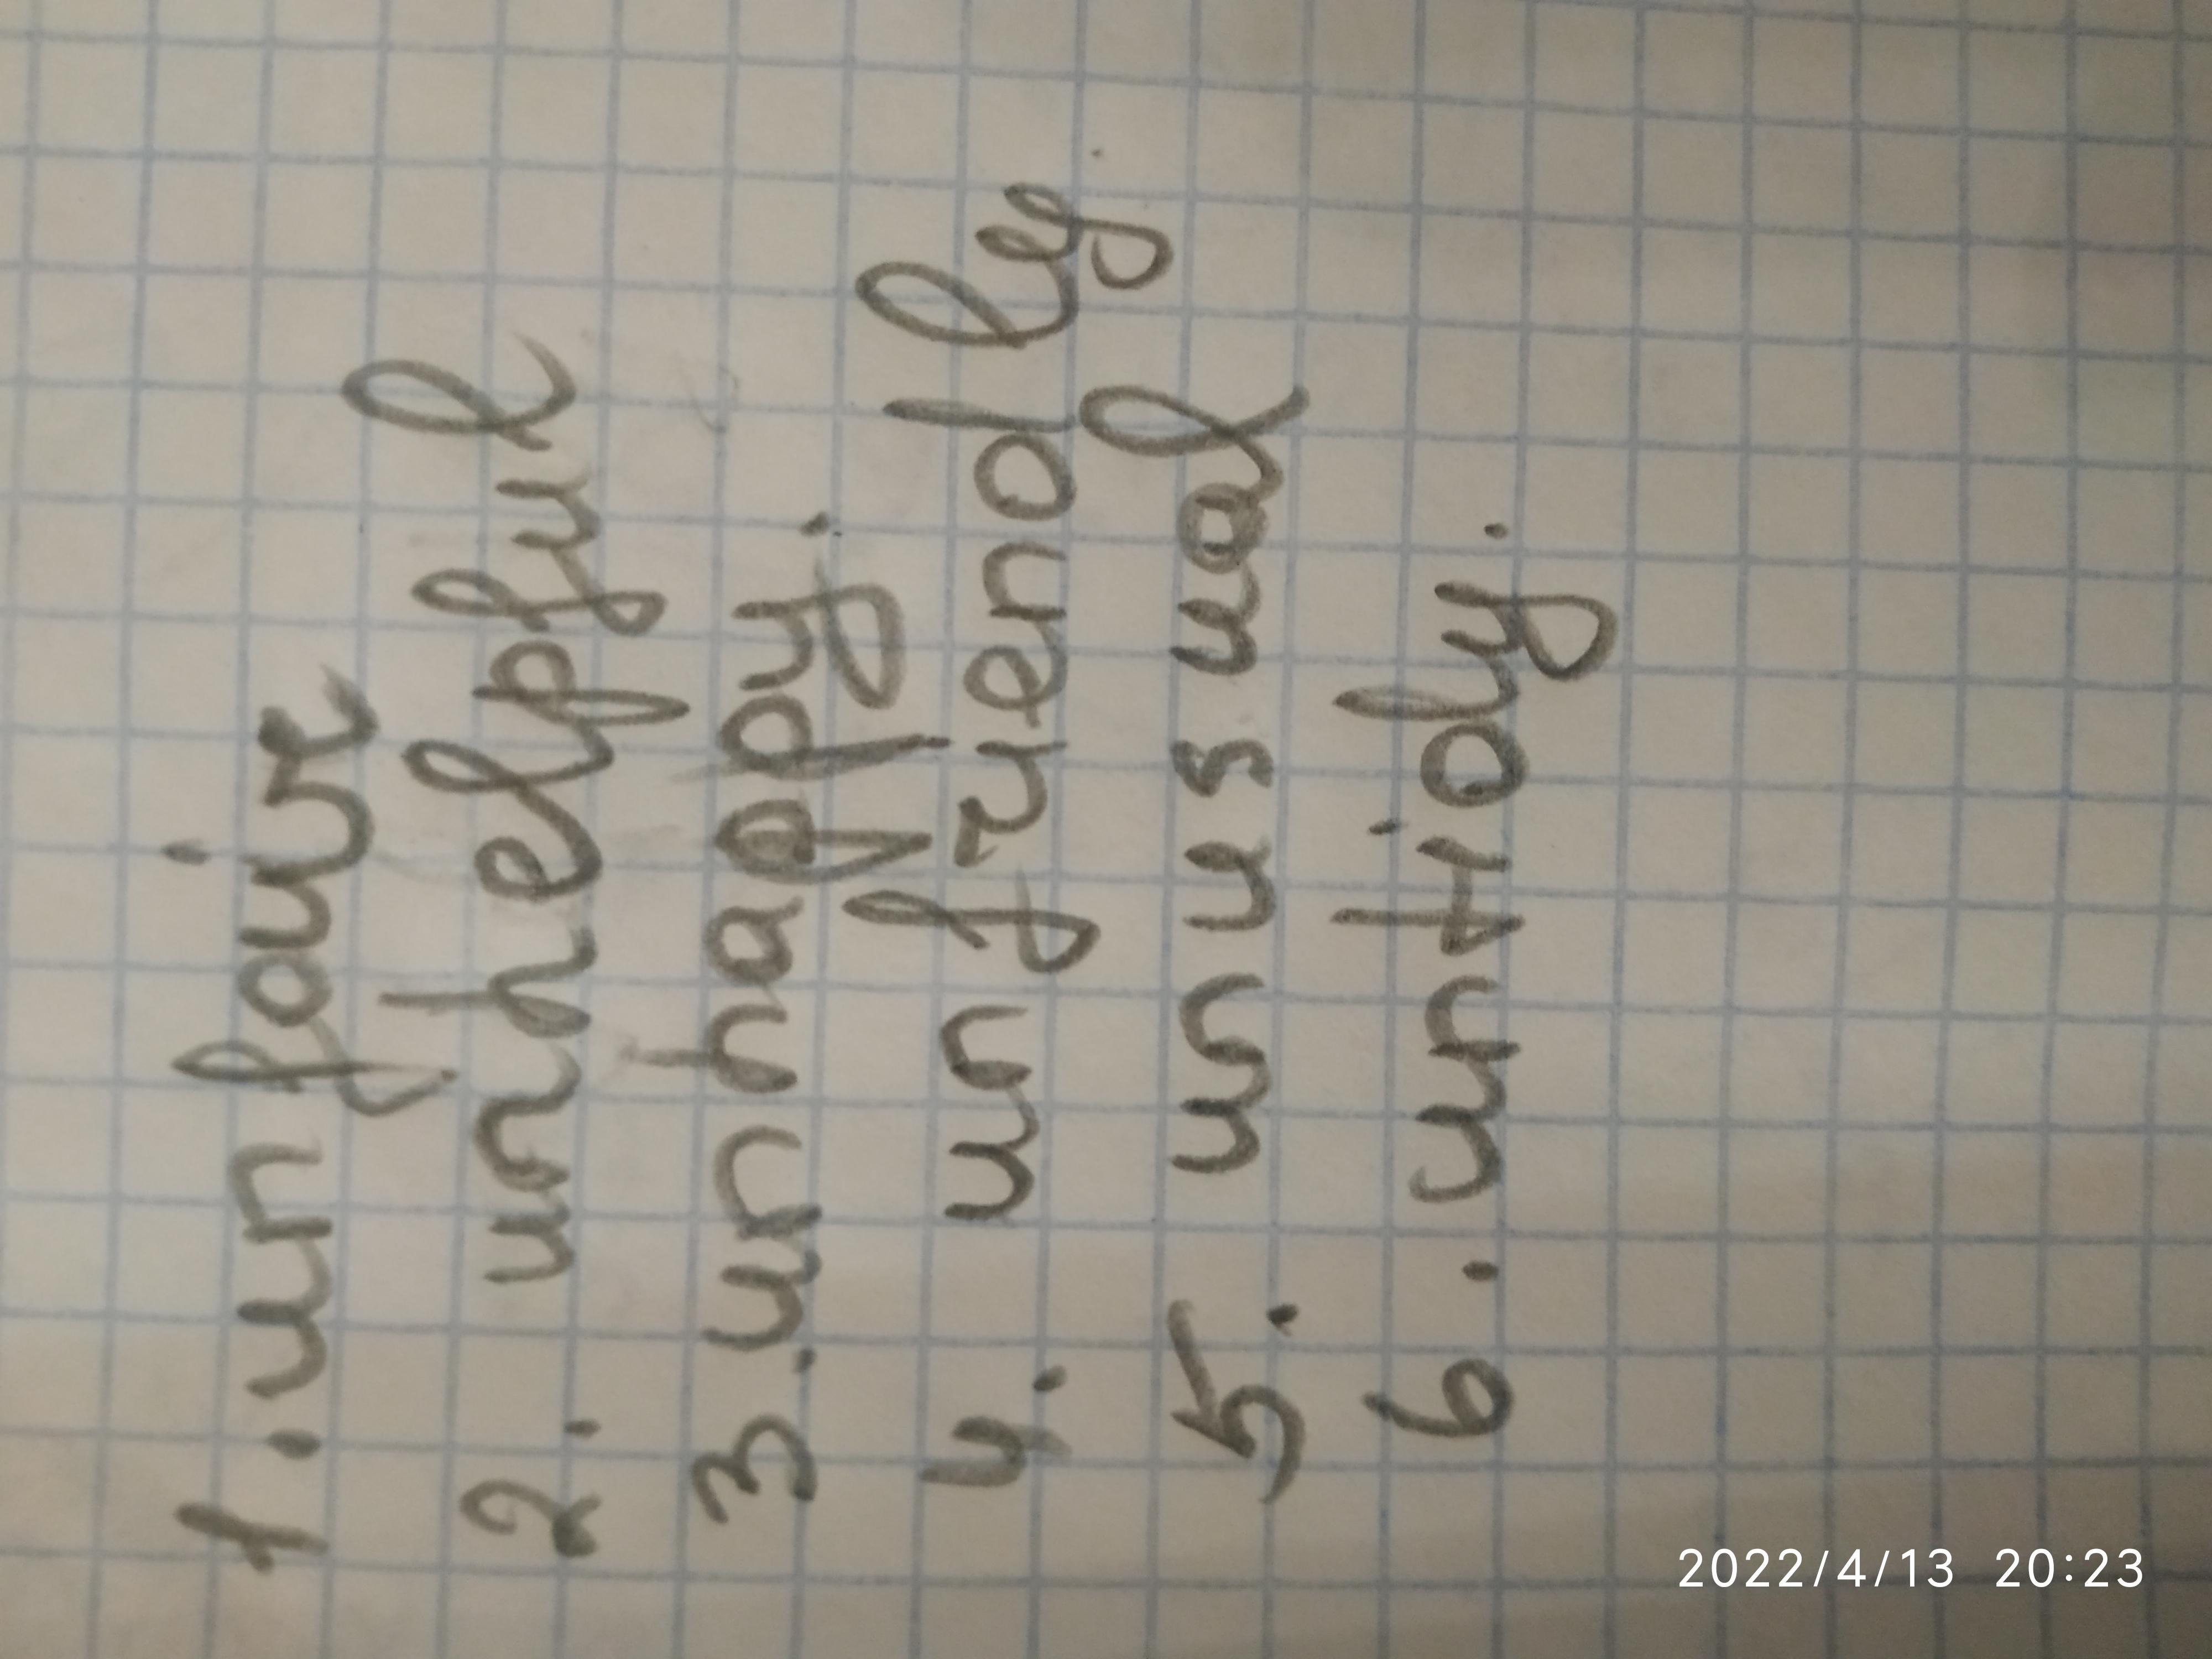 1. unfair
2. unhelpful
3. unhappy.
4. unfriendly.
5. unusual
6. untidy.
2022/4/13 20:23